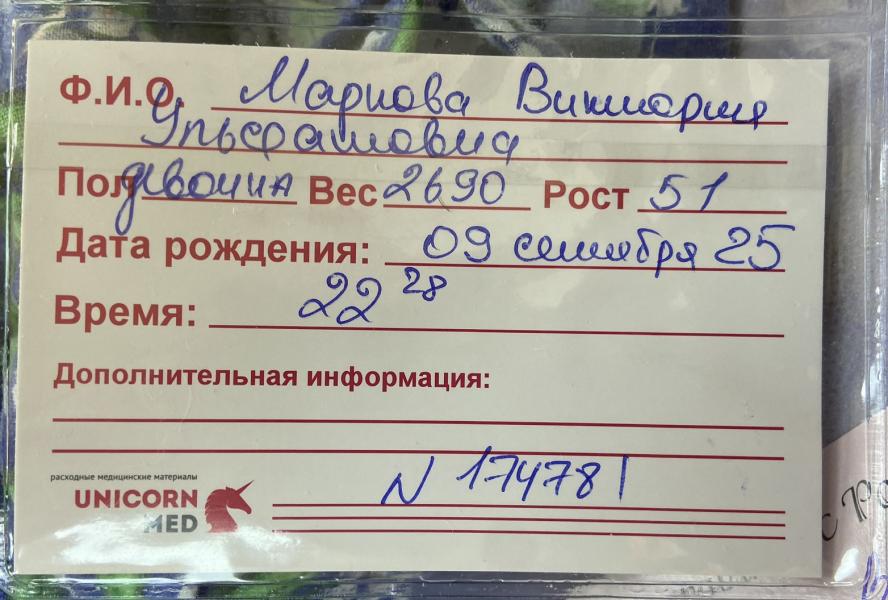 Ф.И.О. Маркова Виктория
Ульфатовна
Пол девочка Вес 2690 Рост 51
Дата рождения: 09 сентября 25
Время: 22 28
Дополнительная информация:
расходные медицинские материалы
UNICORN
MED
N 174781